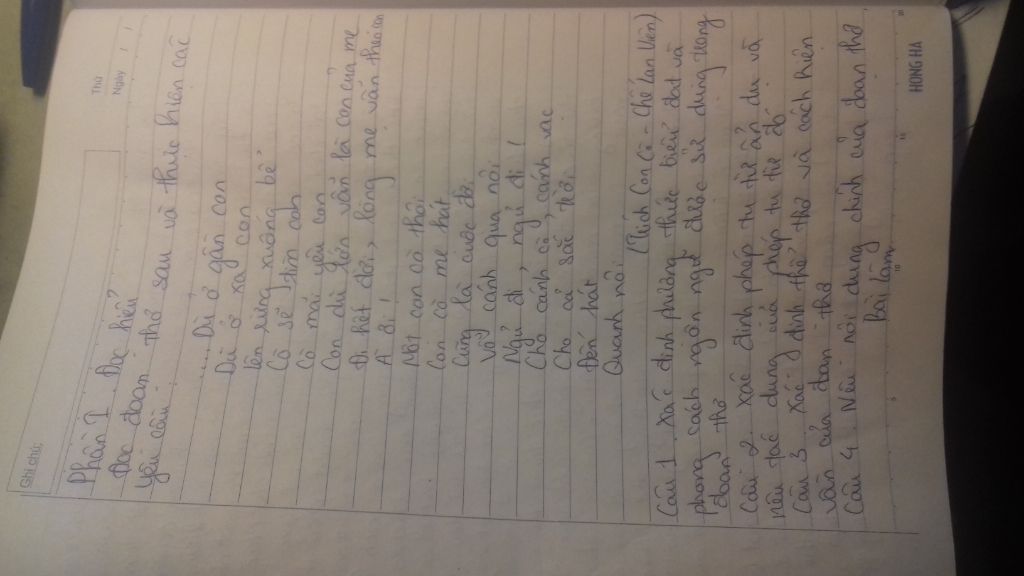 Ghi chú:
Thứ
Ngày
Phần I Đọc hiểu
Đọc đoạn thơ sau và thực hiện các
yêu cầu:
.... Dù ở gần con
Dù ở xa con
Lên rừng xuống bể
Cò sẽ tìm con
Cò mãi yêu con
Con dù lớn vẫn là con của mẹ
Đi hết đời, lòng mẹ vẫn theo con
À ơi!
Một con cò thôi
Con cò mẹ hát
Cũng là cuộc đời
Vỗ cánh qua nôi
Ngủ đi, ngủ đi!
Cho cánh cò, cánh vạc
Cho cả sắc trời
Đến hát
Quanh nôi.
(Trích Con Cò - Chế Lan Viên)
Câu 1. Xác định phương thức biểu đạt và
phong cách ngôn ngữ được sử dụng trong
đoạn thơ
Câu 2. Xác định phép tu từ ẩn dụ và
nêu tác dụng của phép tu từ đó
Câu 3. Xác định thể thơ và cách hiện
vần của đoạn thơ
Câu 4 Nêu nội dung chính của đoạn thơ
Bài làm
5
10
HONG HA